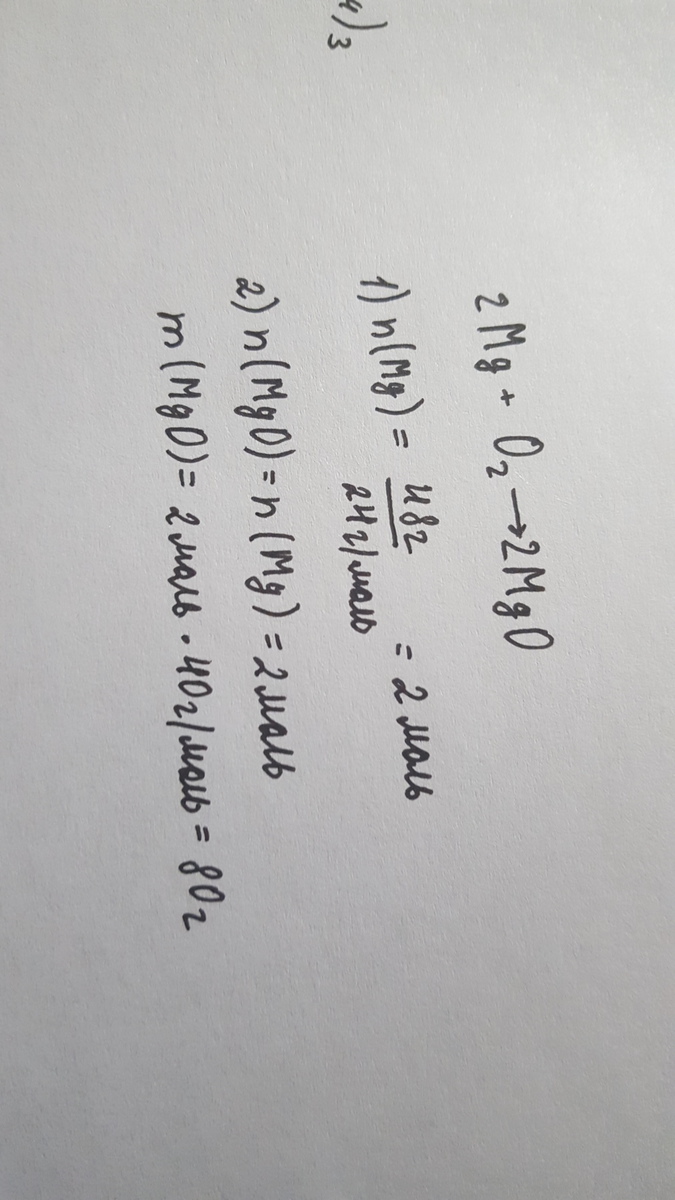 4)3
2Mg + O2 → 2MgO
1) n(Mg) = 48г / 24г/моль = 2 моль
2) n(MgO) = n(Mg) = 2моль
m(MgO) = 2моль · 40г/моль = 80г